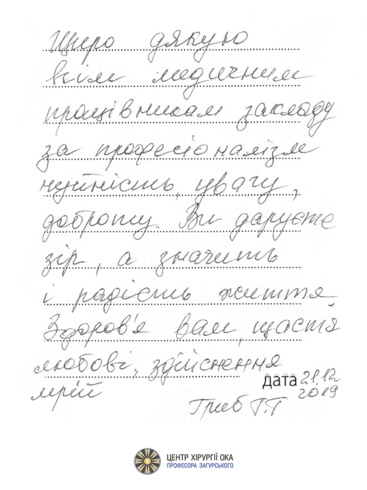 Щиро дякую
всім медичним
працівникам закладу
за професіоналізм
чуйність, увагу,
доброту. Ви даруєте
зір, а значить
і радість життя.
Здоров'я вам, щастя
любові, здійснення
мрій
дата 21.12
2019
Гриб Г.Т
ЦЕНТР ХІРУРГІЇ ОКА
ПРОФЕСОРА ЗАГУРСЬКОГО